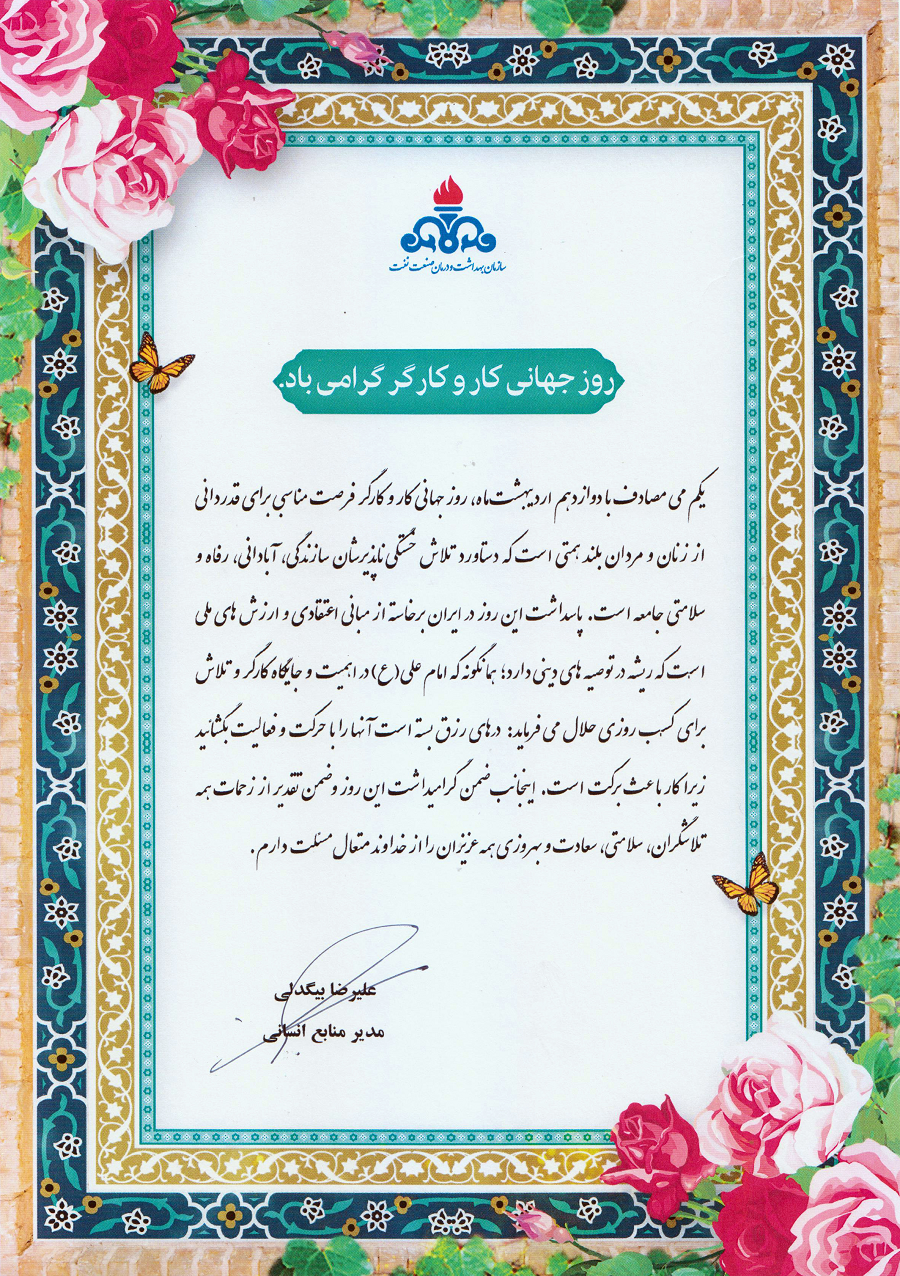 سازمان بهداشت و درمان صنعت نفت
روز جهانی کار و کارگر گرامی باد.
یکم می مصادف با دوازدهم اردیبهشت‌ماه، روز جهانی کار و کارگر فرصت مناسبی برای قدردانی
از زنان و مردان بلند همتی است که دستاورد تلاش خستگی ناپذیرشان سازندگی، آبادانی، رفاه و
سلامتی جامعه است. پاسداشت این روز در ایران برخاسته از مبانی اعتقادی و ارزش های ملی
است که ریشه در توصیه های دینی دارد؛ همانگونه که امام علی(ع) در اهمیت و جایگاه کارگر و تلاش
برای کسب روزی حلال می فرماید: درهای رزق بسته است آنها را با حرکت و فعالیت بگشائید
زیرا کار باعث برکت است. اینجانب ضمن گرامیداشت این روز و ضمن تقدیر از زحمات همه
تلاشگران، سلامتی، سعادت و بهروزی همه عزیزان را از خداوند متعال مسئلت دارم.
علیرضا بیگدلی
مدیر منابع انسانی